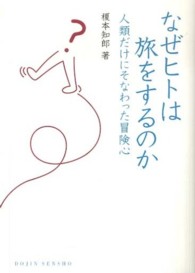 なぜヒトは
旅をするのか
人類だけにそなわった冒険心
榎本知郎 著
DOJIN SENSHO